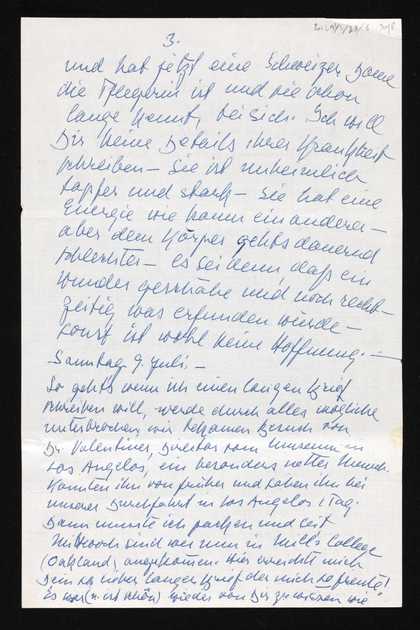 3.
und hat jetzt eine Schweizer Dame
die Pflegerin ist und sie schon
lange kennt, bei sich. Ich will
Dir keine Details ihrer Krankheit
schreiben – Sie ist unheimlich
tapfer und stark – Sie hat eine
Energie wie kaum ein anderer –
aber dem Körper gehts dauernd
schlechter – es sei denn dass ein
Wunder geschähe und noch recht-
zeitig was erfunden würde –
sonst ist wohl keine Hoffnung. –
Samstag 9. Juli. –
So gehts wenn ich einen langen Brief
schreiben will, werde durch alles mögliche
unterbrochen wir bekamen Besuch von
Dr Valentiner, Director vom Museum in
Los Angelos, ein besonders netter Mensch.
Kannten ihn von früher und sahen ihn bei
unserer Durchfahrt in Los Angelos 1 Tag.
Dann musste ich packen und seit
Mittwoch sind wir nun in Mill's College
(Oakland) angekommen. Hier erreichte mich
Dein so lieber langer Brief der mich so freute!
Es war (u. ist schön) wieder von Dir zu wissen wie